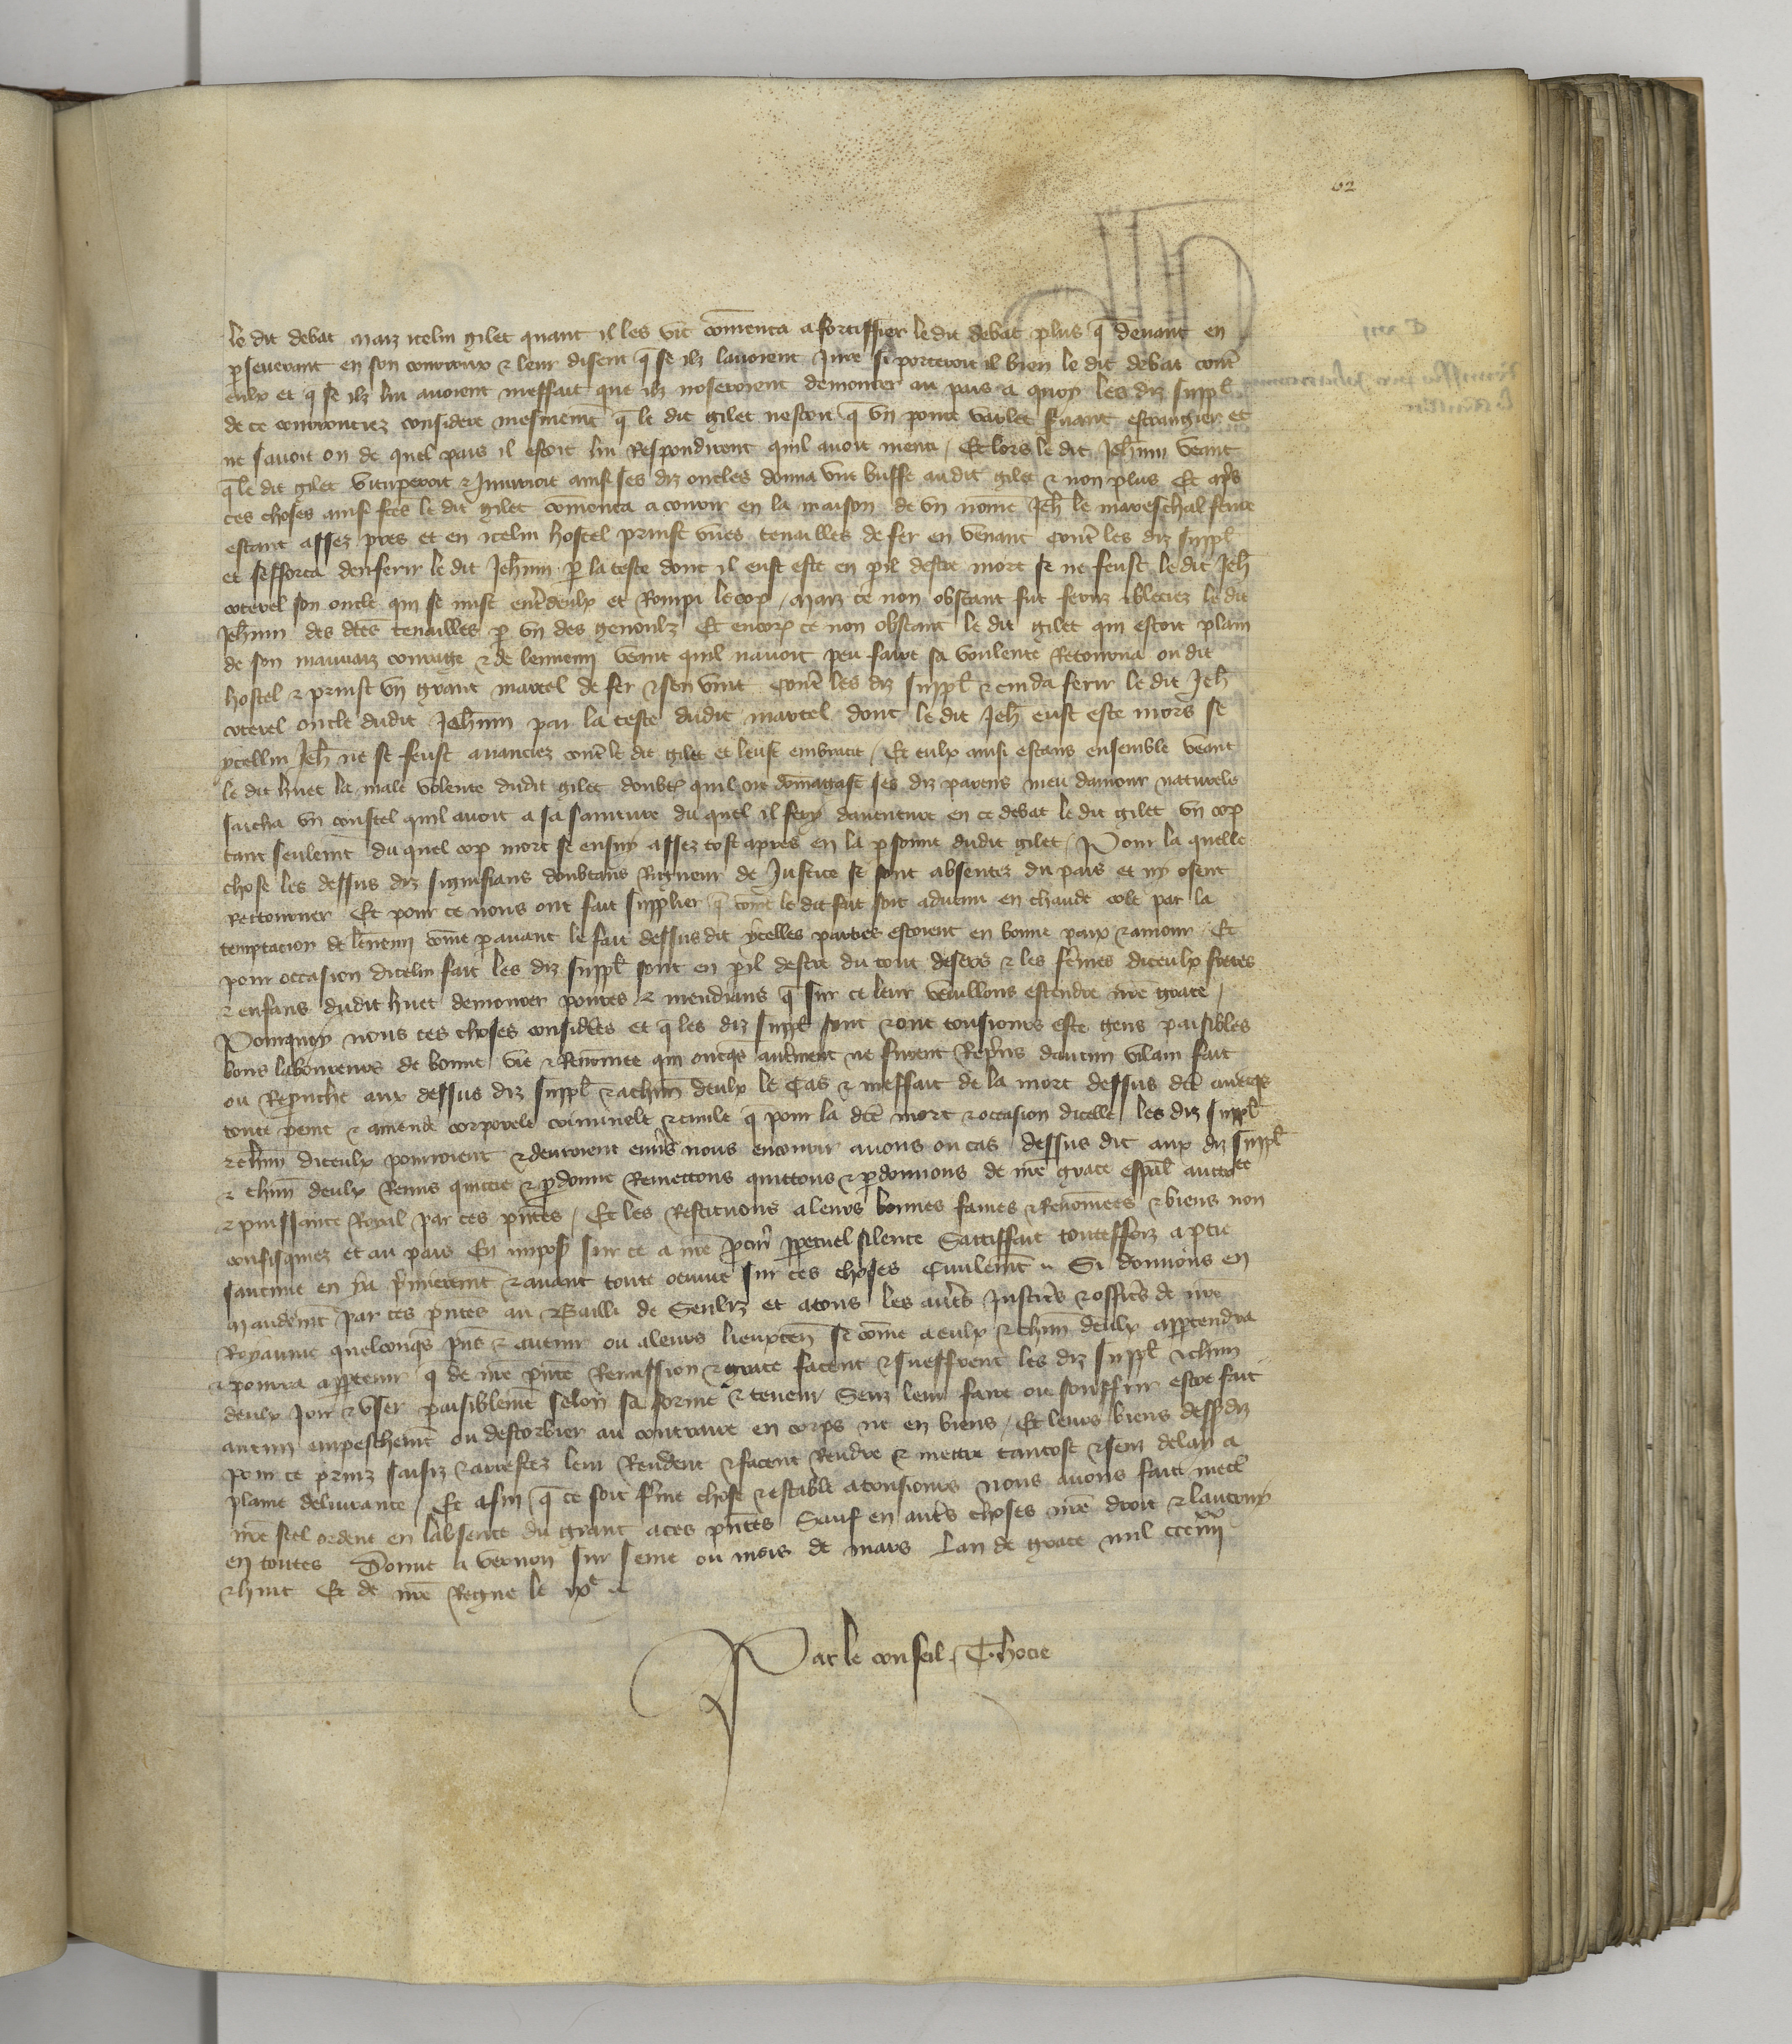 62
le dit debat maiz icelui gilet quant il les vit com̄enca a fortiffier le dit debat plus q̄ deuant en
ꝑseuerant en son courroux & leur disent q̄ se ilz lauoient Jure si porteroit il bien le dit debat cont̄
eulx et q̄ se ilz lui auoient meffait que ilz noseroient demourer au pais a quoy les diz suppl̄
de ce courrouciez considere mesmem̄t q̄ le dit gilet nestoit q̄ vn poure varlet s̄uant estrangier et
ne sauoit on de quel pais il estoit lui Respondirent quil auoit menti / Et lors le dit Jeh̄nin veant
q̄ le dit gilet vituperoit & Iniurioit ainsi ses diz oncles donna vne buffe audit gilet & non plus Et ap̄s
ces choses ainsi fc̄es le dit gilet com̄enca a courir en la maison de vn nom̄e Jeh̄ le mareschal feure
estant assez pres et en icelui hostel prinst vnes tenailles de fer en venant cont̄ les diz suppl̄
et sefforca denferir le dit Jeh̄nin ꝑ la teste dont il eust este en ꝑil destre mort se ne feust le dit Jeh̄
coterel son oncle qui se mist ent̄deulx et Rompi le cop / maiz ce non obstant fut feruz & bleciez le dit
Jeh̄nin des dc̄es tenailles ꝑ vn des genoulz Et encor̄ ce non obstant le dit gilet qui estoit plain
de son mauuaiz courage & de lennemi veant quil nauoit peu faire sa voulente Retourna ou dit
hostel & prinst vn grant martel de fer & sen vint cont̄ les diz suppl̄ & cuida ferir le dit Jeh̄
coterel oncle dudit Jeh̄nin par la teste dudit martel dont le dit Jeh̄ eust este mors se
ycellui Jeh̄ ne se feust auanciez cont̄ le dit gilet et leust embracie / Et eulx ainsi estans ensemble veant
le dit huet la male volente dudit gilet doubt̄ quil ne dom̄agast ses diz parens meu damour naturele
sacha vn coustel quil auoit a sa sainture du quel il fery dauenture en ce debat le dit gilet vn cop
tant seulem̄t du quel cop mort se ensuy assez tost apres en la ꝑsonne dudit gilet / Pour la quelle
chose les dessus diz signifians doubtans Rigueur de Justice se sont absentez du pais et ny osent
rectourner Et pour ce nous ont fait supplier q̄ com̄e le dit fait soit aduenu en chaude cole par la
temptacion de lēnemi com̄e ꝑauant le fait dessusdit ycelles parties estoient en bonne paix & amour / Et
pour occasion dicelui fait les diz suppl̄ sont en ꝑil destre du tout desers & les fēmes diceulx freres
& enfans dudit huet demourer poures & mendians q̄ sur ce leur vueillons estendre nr̄e grace /
Pourquoy nous ces choses considē̄es et q̄ les diz suppl̄ sont & ont tousiours este gens paisibles
bons laboureurs de bonne vie & Renom̄ee qui oncq̄s aut̄ment ne furent Repr̄ins daucun vilain fait
ou Reprouche aux dessus diz suppl̄ & a chūn deulx le cas & meffait de la mort dessus dc̄e auecq̄s
toute peine & amende corporele criminele & ciuile q̄ pour la dc̄e mort & occasion dicelle les diz suppl̄
& chūn diceulx pourroient & deuroient enu̅s nous encourir auons ou cas dessus dit aux diz suppl̄
& chūn deulx Remis quictie & ꝑdonne Remettons quittons & ꝑdonnons de nr̄e grace esp̄al aucto^te
& puissance Royal par ces pn̄tes / Et les Restituons a leurs bonnes fames & Renom̄ees & biens non
confisquez et au pais En imposant sur ce a nr̄e procur̄ ꝑpetuel silence Satiffait toutesfoiz a ꝑtie
saucune en ya p̄mierem̄t & auant toute oeuure sur ces choses Ciuilem̄t Si donnons en
mandem̄t par ces pn̄tes au Bailli de Senliz et a tous les aut̄s Justic̄rs & offic̄rs de nr̄e
Royaume quelconq̄s pn̄s & auenir ou a leurs lieuxten̄ se com̄e a eulx & chūn deulx appartendra
& pourra appartenir q̄ de nr̄e pn̄te Remission & grace facent & sueffrent les diz suppl̄ & chūn
deulx Joir & vser paisiblem̄t selon sa forme & teneur Senz leur faire ou souffrir estre fait
aucun empeschem̄t ou destorbier au contraire en corps ne en biens / Et leurs biens dessusdiz
pour ce prinz saisiz & arrestez leur Rendent & facent Rendre & mettre tantost & senz delay a
plaine deliurance / Et afin q̄ ce soit fer̄me chose & estable a tousiours nous auons fait mect̄
nr̄e scel ordene en labsence du grant a ces pn̄tes Sauf en aut̄s choses nr̄e droit & lautruy
en toutes Donne a vernon sur seine ou mois de mars Lan de grace mil ccc iiii^xx
& huit Et de nr̄e Regne le ix^e
Par le conseil / T. hocie